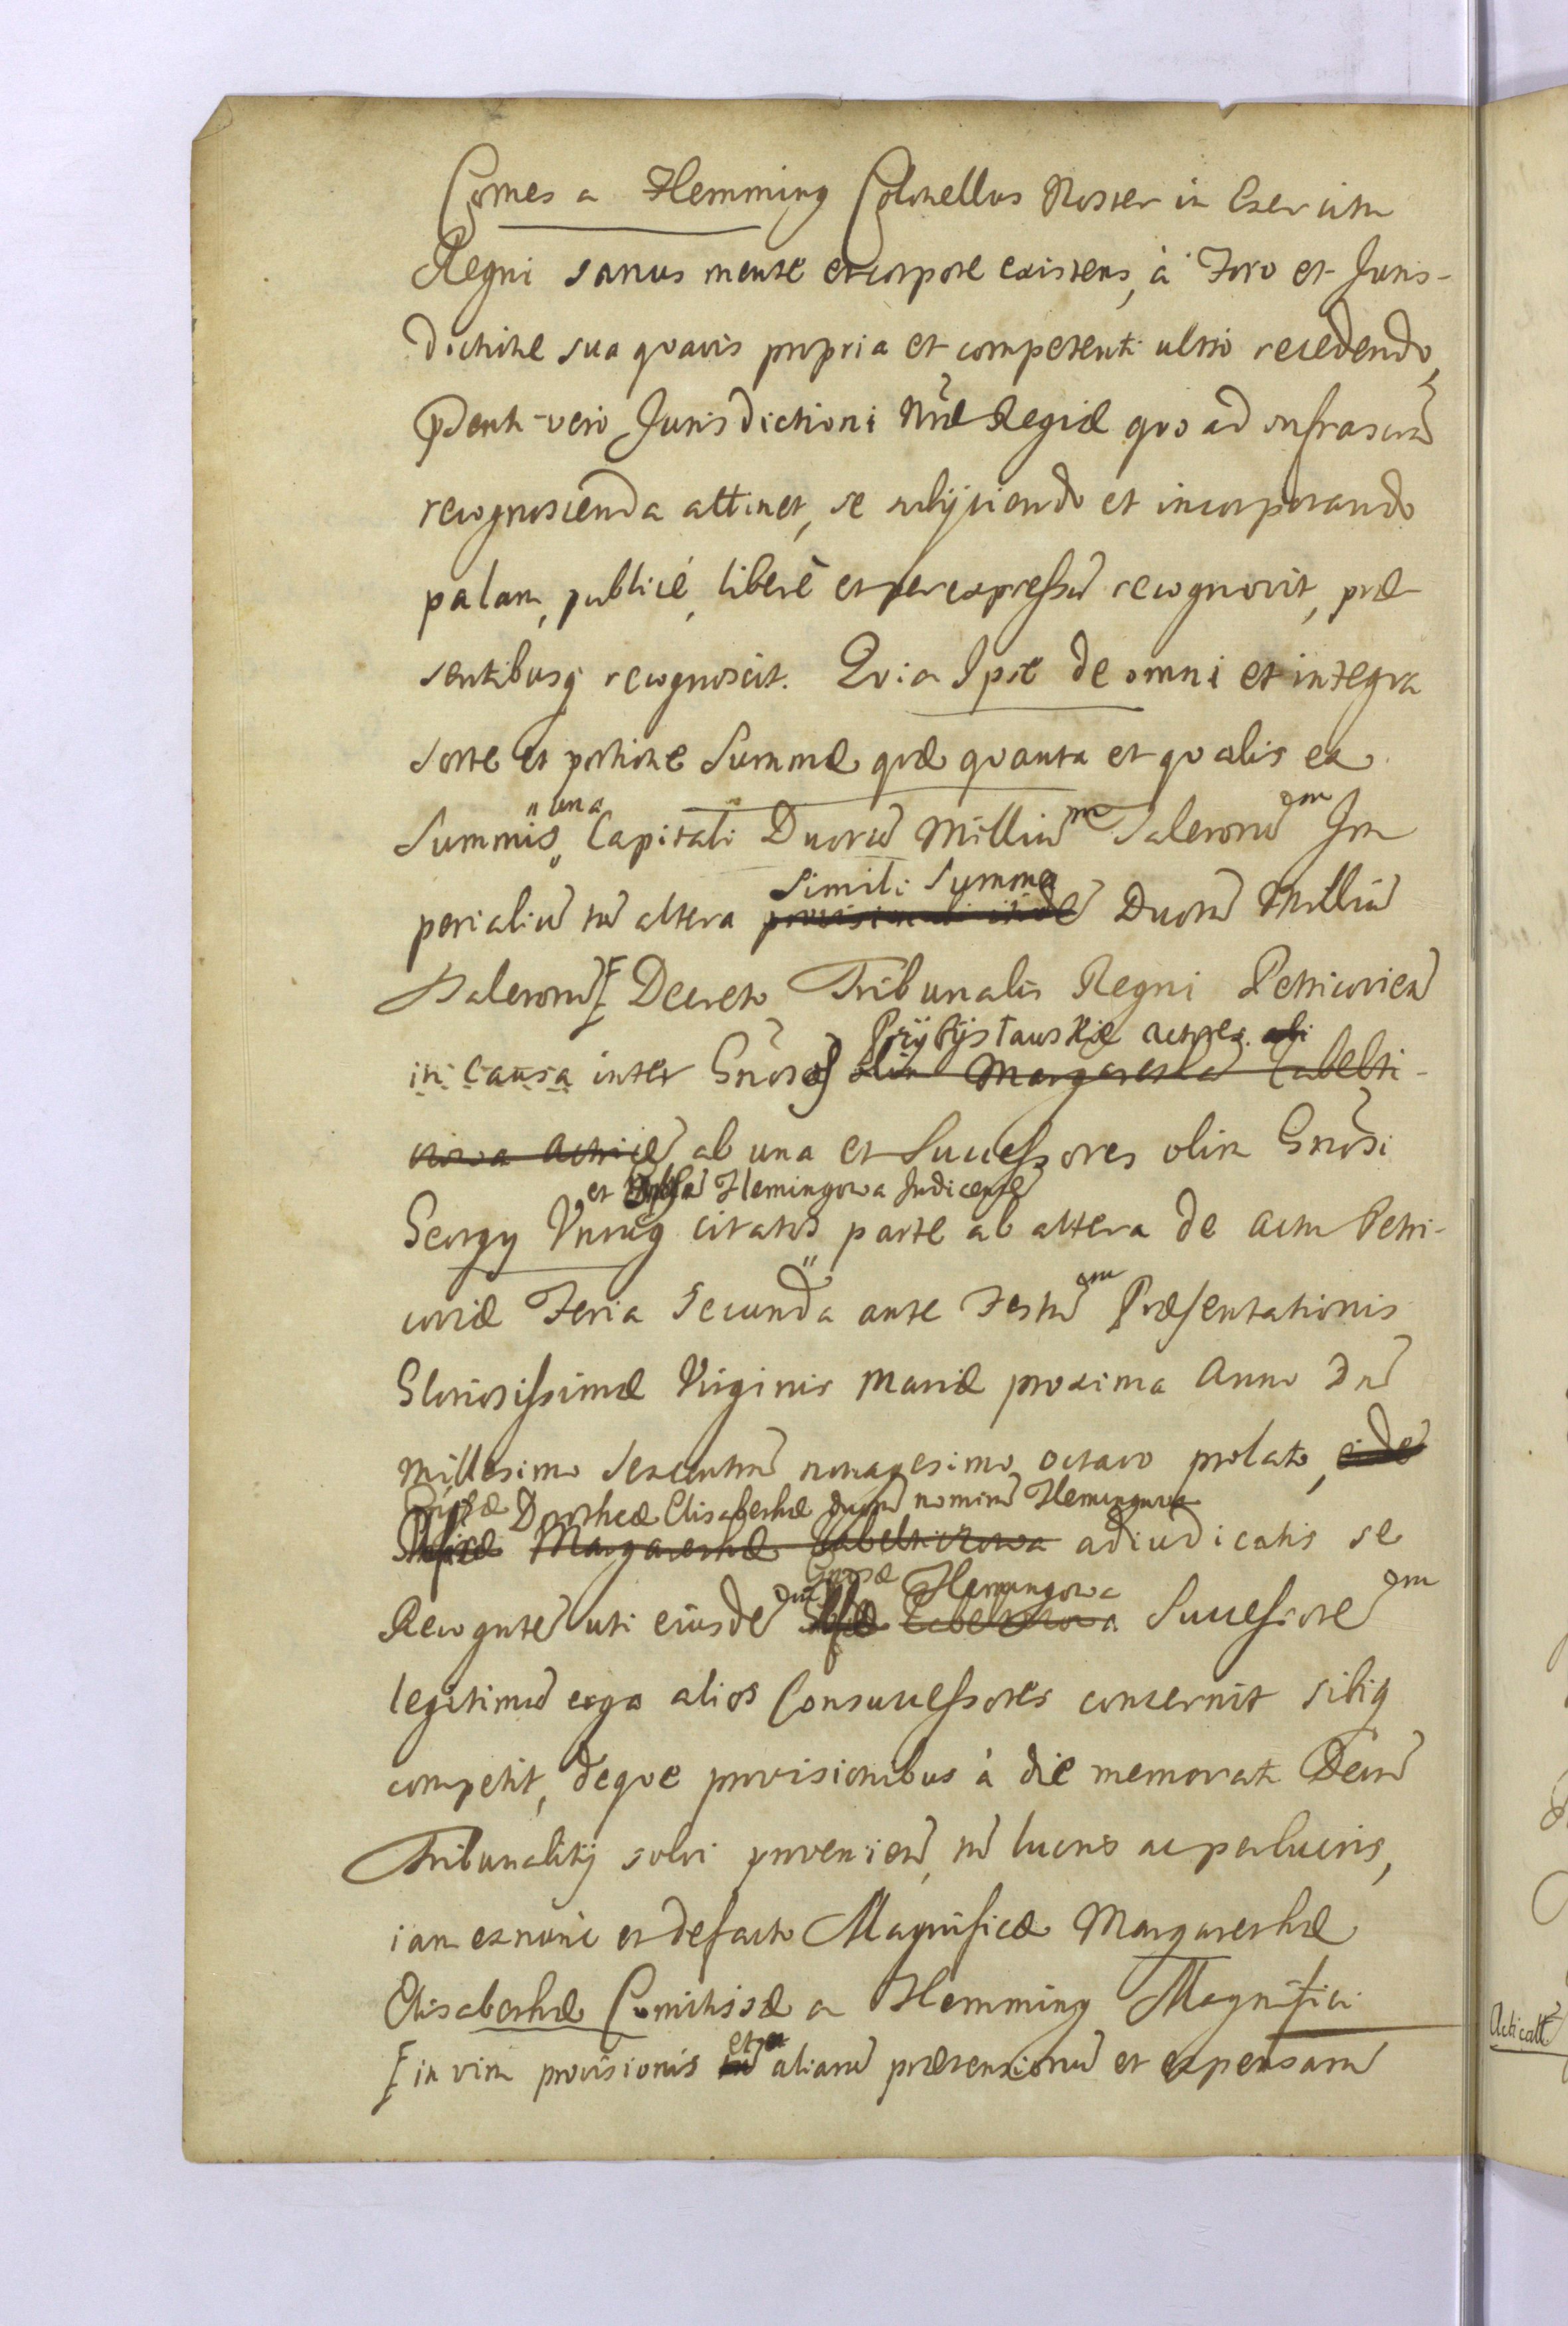 Comes a Hemming Colonellus Noster in Exercitu
Regni sanus mente et corpore existens, à Foro et Juris-
dictione sua quavis propria et competenti ultro recedendo,
pdenti vero Jurisdictioni Nrae Regiae quo ad infrascra
recognoscenda attinet, se subijciendo et incorporando
palam, publicé, liberè et per expressu recognovit, prae-
sentibusq recognoscit. Quia Ipse de omni et integra
sorte et portione Summae quae quanta et qualis ex
una
Summis Capitali Duoru Milliu Talerorum Im
Simili Summa
perialiu tu altera Duoru Milliu
Taleroru [ Decreto Tribunalis Regni Petricovien
Przybysławskie actores
in causa inter Gnosos
ab una et Successores olim Gnosi
et Hemingowa Judicente
Georgy Unrug citatos parte ab altera de actu Petri-
coviae Feria Secunda ante Festum Praesentationis
Gloriosissimae Virginis Mariae proxima Anno Dn
millesimo sexcentmo nonagesimo octavo prolato,
Gnosae Dorotheae Elisabethae duoru nominu Hemingowa
Margarethae adiudicatis se
Gnosae Hemingowa
Recognte uti eiusdem Successorem
legitimu erga alios Consuccessores concernit sibiq
competit, deque provisionibus à die memorati Decri
Tribunalitij solvi provenien, tu lucris ac perlucris,
iam ex nunc et defacto Magnificae Margarethae
Elisabethae Comitissae a Hemming Magnifici
et
[ in vim provisionis aliaru praetensionu et expensaru
Acticatt